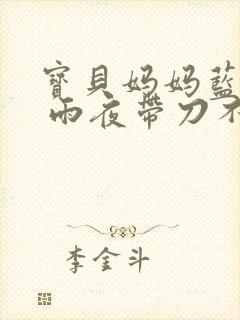 寶貝妈妈藍
雨夜帶刀不
李金斗